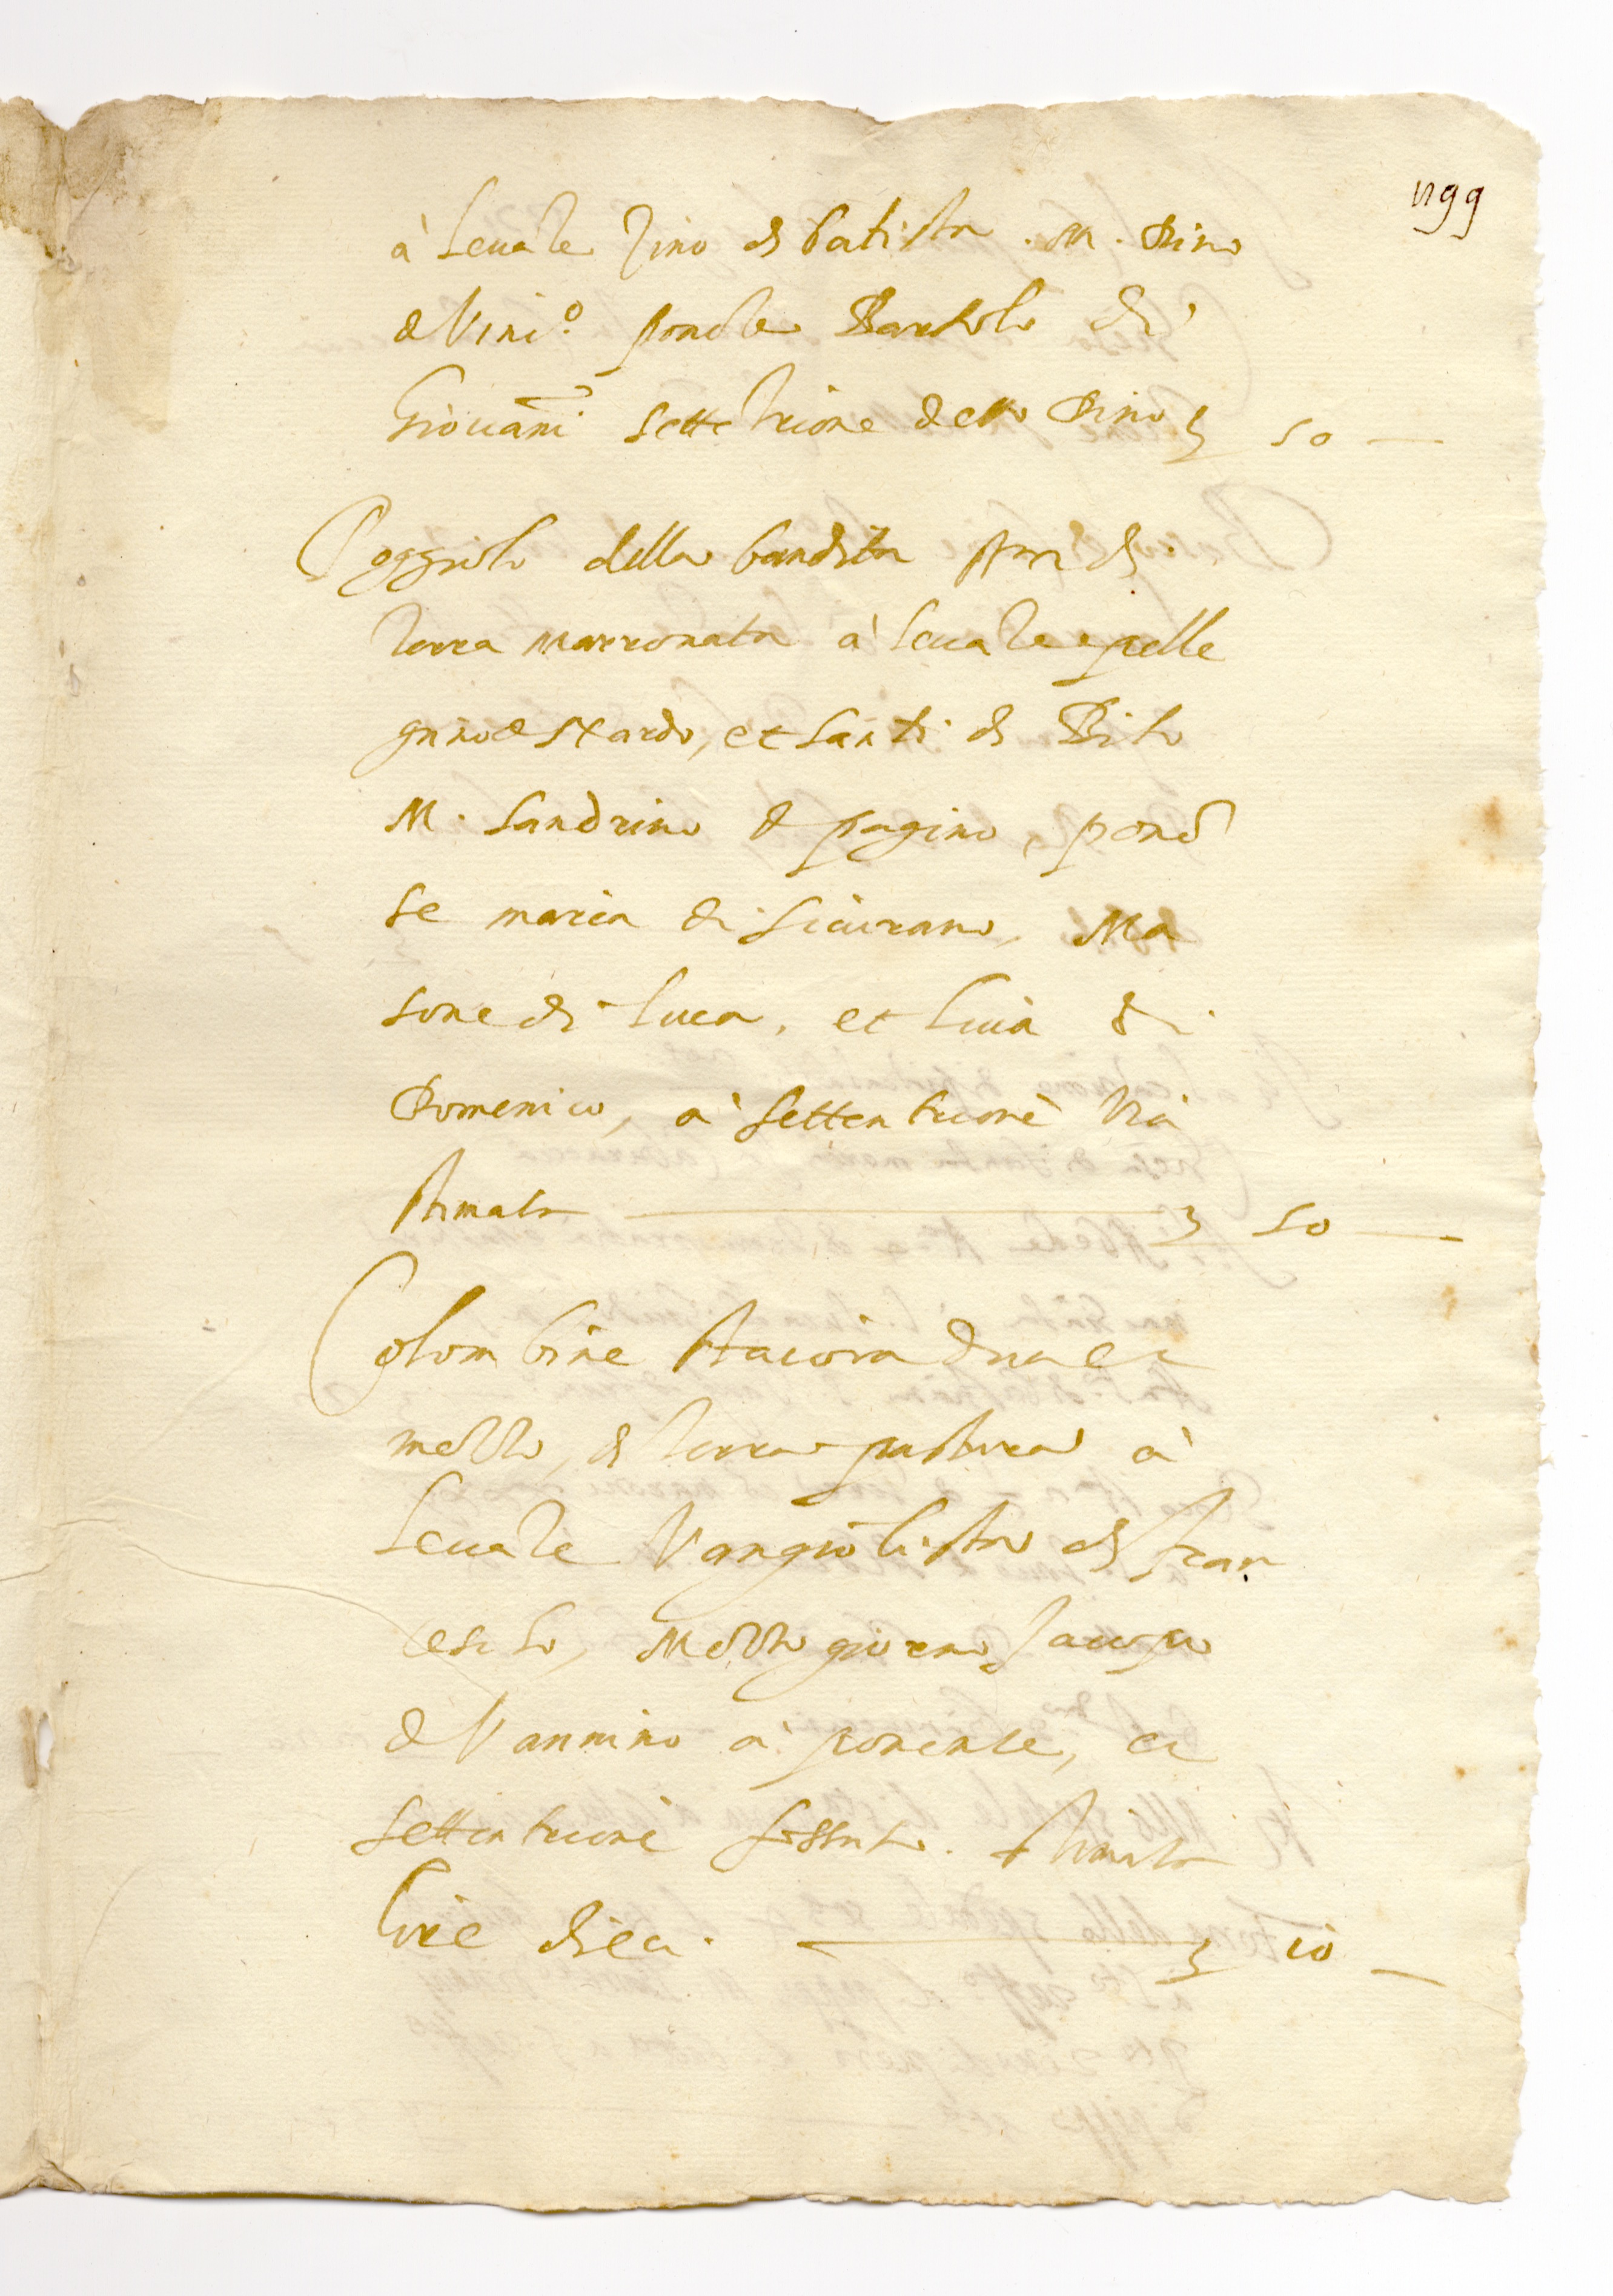 1199
à Leuante Zino di batista . M . Dino
di Vinc.o ponete Bartolo di
Giouāni Settetrione detto Dino 50 —
Poggiolo della bandita di
terra marronata à leuante pelle
grino et santi di Bito
M . Sandrino di pagino, ponē
te maria di Sicurano, Ma
sone di luca, et liuia di
Domenico, à settentrione Via
stimata —— 50 —
Colombine staiora dua et
mezzo, di terra pastura à
Leuante Vangiolista di fran
cescho, Mezzo giorno Jacopo
di Vannino à ponente, et
settentrione fossato . stimata
lire dieci . —— 10 —